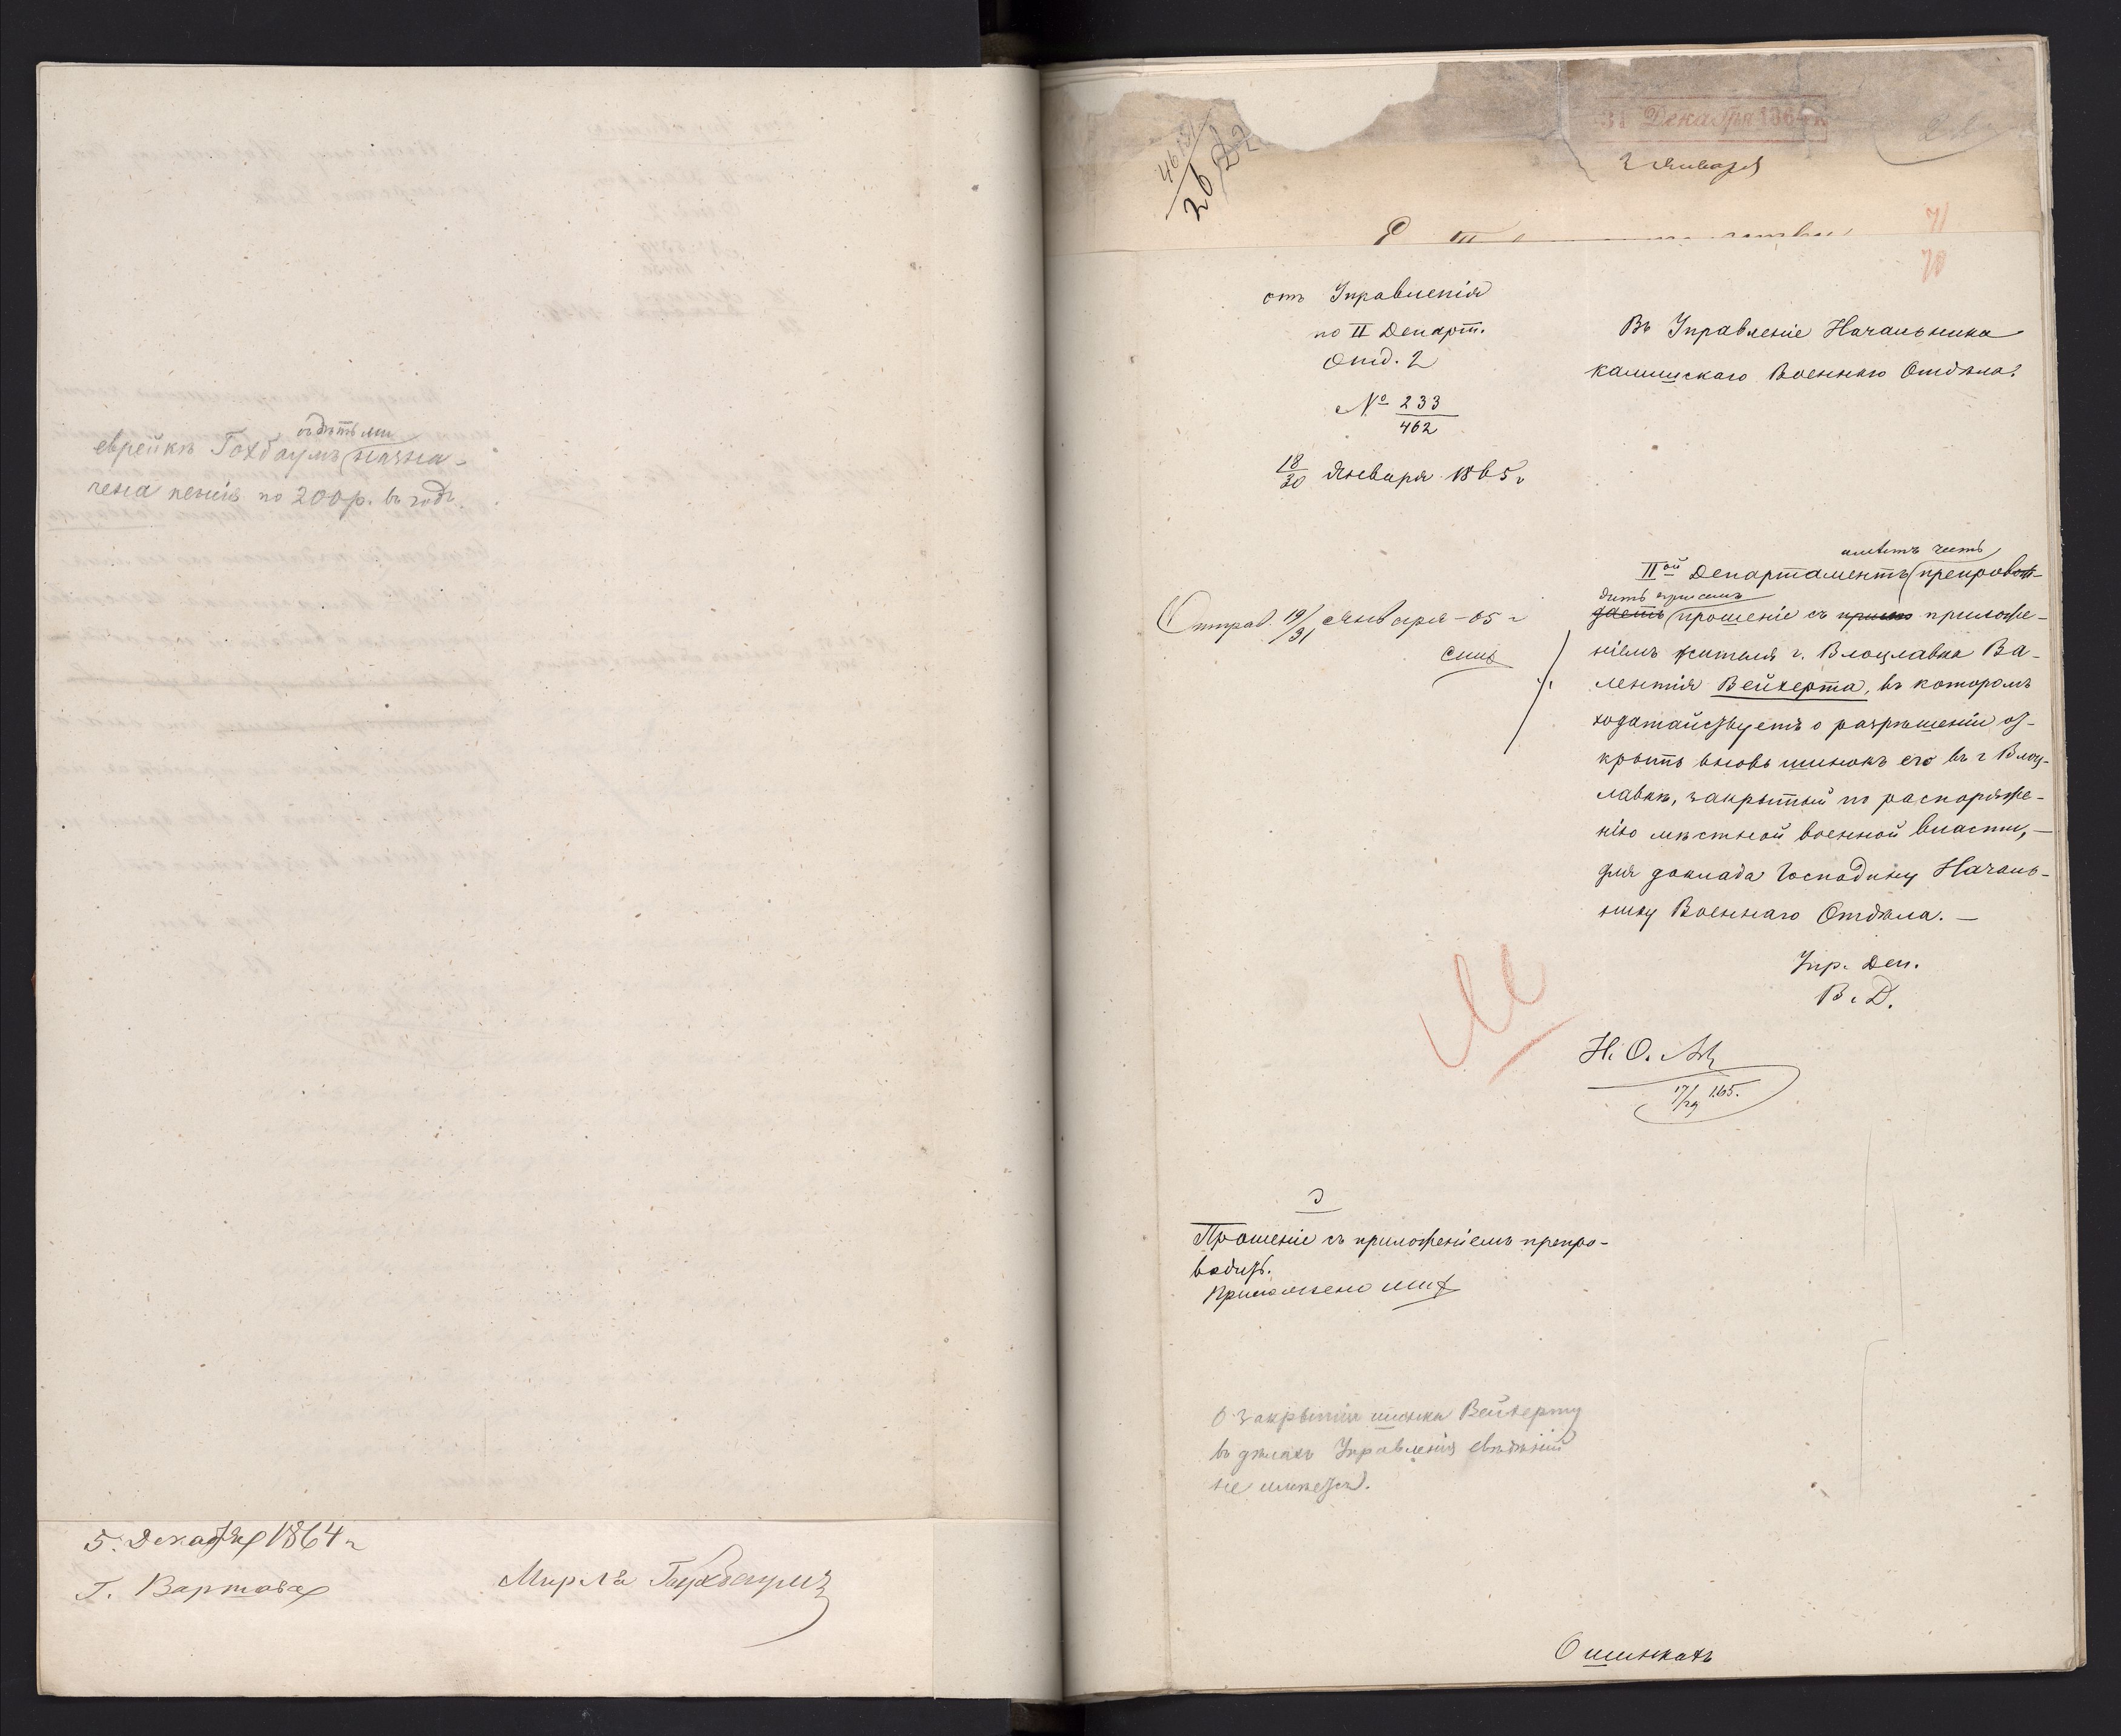 съ дѣтьми
еврейкѣ Гохбаумъ назна-
чена пенсія по 200 р. въ годъ.
5. Декабря 1864 г
Г. Варшава
Мирла Гохбаумъ
31 Декабря 1864
2 Января
71
70
отъ Управленія
по II Департ.
Отд. 2
№ 233
462
18
30 Января 1865 г
Въ Управленіе Начальника
калишскаго Военнаго Отдѣла.
имѣетъ честь
IIой Департаментъ препровож-
дить при семъ
даетъ прошеніе съ прилож приложе-
ніемъ жителя г. Влоцлавка Ва-
лентія Вейхерта, въ которомъ
ходатайствуетъ о разрѣшеніи от-
крыть вновь шинокъ его въ г Влоц-
лавкѣ, закрытый по распоряже-
нію мѣстной военной власти, —
для доклада Господину Началь-
нику Военнаго Отдѣла. —
Отправ. 19/31 Января – 65 г
Упр. Деп.
В. Д.
Н. О.
17/29 1.65.
Прошеніе съ приложеніемъ препро-
водить.
Приложено
О закрытіи шинка Вейхерту
въ дѣлахъ Управленія свѣдѣній
не имѣется.
О шинкахъ